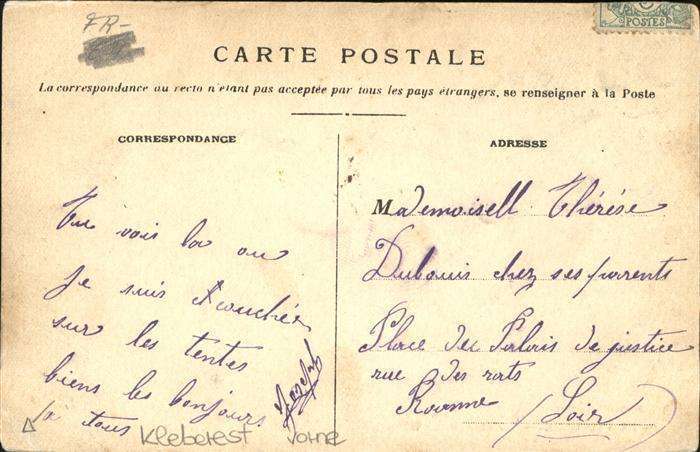 FR-
POSTES
CARTE POSTALE
La correspondance au recto n'étant pas acceptée par tous les pays étrangers, se renseigner à la Poste
CORRESPONDANCE
Tu vois la ou
je suis
sur les tentes
biens les bonjours
a tous
ADRESSE
Mademoisell Thérèse
Dubouis chez ses parents
Place du Palais de justice
rue des rats
Roanne (Loir)
Kleberest vorne